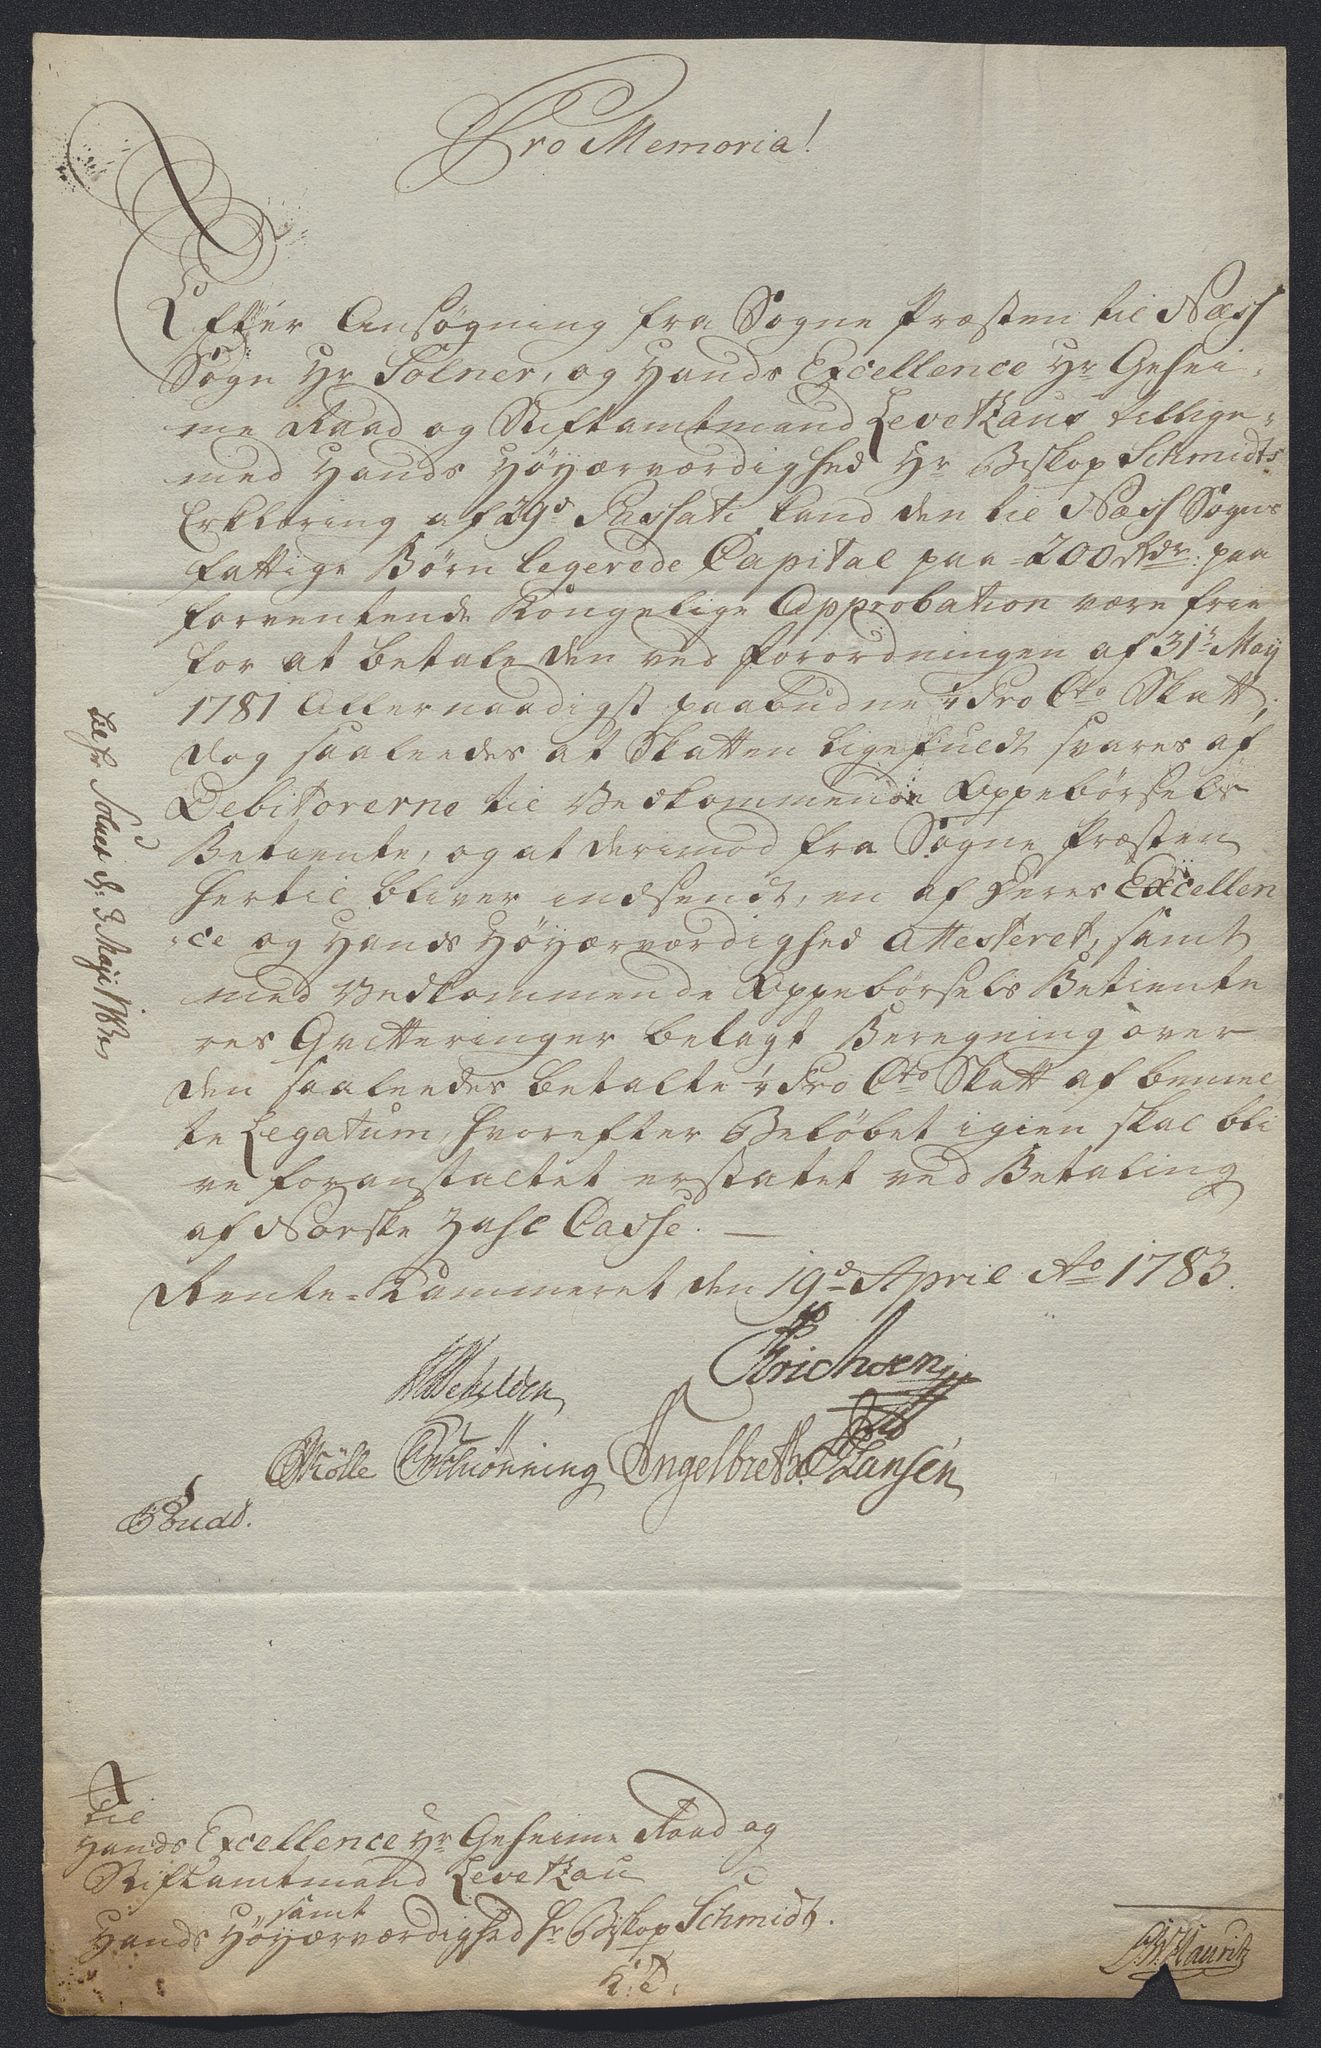 Pro Memoria!
Efter Ansøgning fra Sogne Præsten til Næss
Sogn Hr Tolner, og Hands Excellence Hr Gehei-
me Raad og Stiftamtmand Levetzaus tillige-
med Hands Høyærværdighed Hr Biskop Schmidts
Erklæring af 29d Passati kand den til Næss Sogns
fattige Børn legerede Capital paa 200 Rdr paa
forventende Kongelige Approbation være frie
for at betale den ved Forordningen af 31te May
1781 Allernaadigst paabudne ¼ Pro Cto Skatt,
dog saaleedes at Skatten ligefuldt svares af
Debitorerne til Vedkommende Oppebørsels
Betiente, og at derimod fra Sogne Præsten
hertil bliver indsendt, en af Deres Excellen
ce og Hands Høyærværdighed attesteret, samt
med Vedkommende Oppebørsels Betiente
res Qvitteringer belagt Beregning over
den saaleedes betalte ¼ Pro Cto Skatt af bemel
te Legatum, hvorefter Beløbet igien skal bli
ve foranstaltet erstatet ved Betaling
af Norske Zahl Casse.
Rente-Kammeret den 19d April Ao 1783.
Erichsen
Schilden
Mølle Schiönning Engelbreth. Hansen
Til
Hands Excellence Hr Geheime Raad og
Stiftamtmand Levetzau
samt
Hands Høyærværdighed Hr Biskop Schmidt.
Lauritz